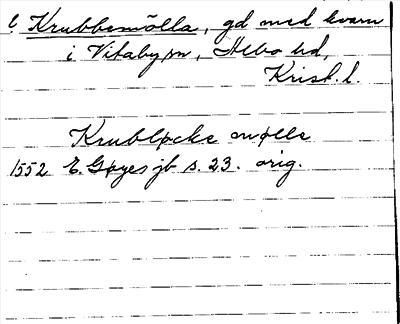 l. Krubbemölla, gd med kvarn
i Vitaby sn, Albo hd,
Krist. l.
Krubløcke mølle
1552 E. Gøyes jb s. 23. orig.